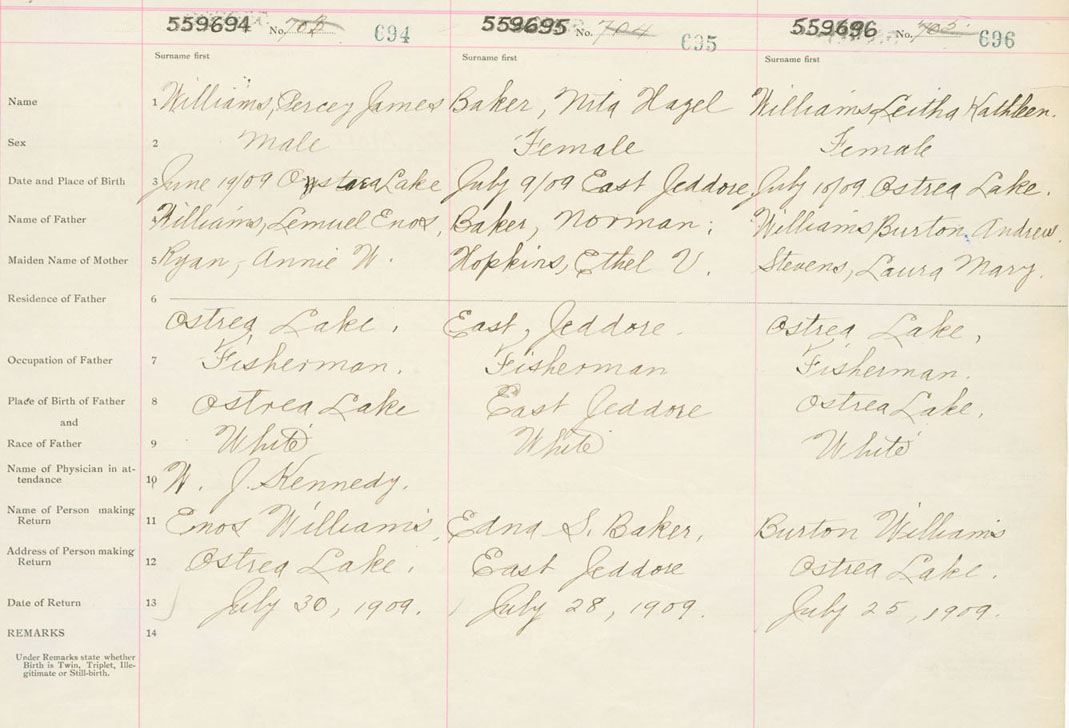 559694 No. 703 694 559695 No. 704 695 559696 No. 705 696
Surname first Surname first Surname first
Name 1 Williams, Percey James Baker, Nita Hazel Williams Leitha Kathleen.
Sex 2 Male Female Female
Date and Place of Birth 3 June 19/09 Ostrea Lake July 9/09 East Jeddore, July 10/09 Ostrea Lake.
Name of Father 4 Williams, Lemuel Enos, Baker, Norman; Williams, Burton Andrew.
Maiden Name of Mother 5 Ryan, Annie W. Hopkins, Ethel V. Stevens, Laura Mary.
Residence of Father 6
Ostrea Lake, East, Jeddore. Ostrea Lake,
Occupation of Father 7 Fisherman. Fisherman Fisherman.
Place of Birth of Father 8 Ostrea Lake East Jeddore Ostrea Lake,
and
Race of Father 9 White White White
Name of Physician in at-
tendance 10 W. J. Kennedy.
Name of Person making
Return 11 Enos Williams, Edna S. Baker, Burton Williams
Address of Person making
Return 12 Ostrea Lake. East Jeddore Ostrea Lake.
Date of Return 13 July 30, 1909. July 28, 1909. July 25, 1909.
REMARKS 14
Under Remarks state whether
Birth is Twin, Triplet, Ille-
gitimate or Still-birth.